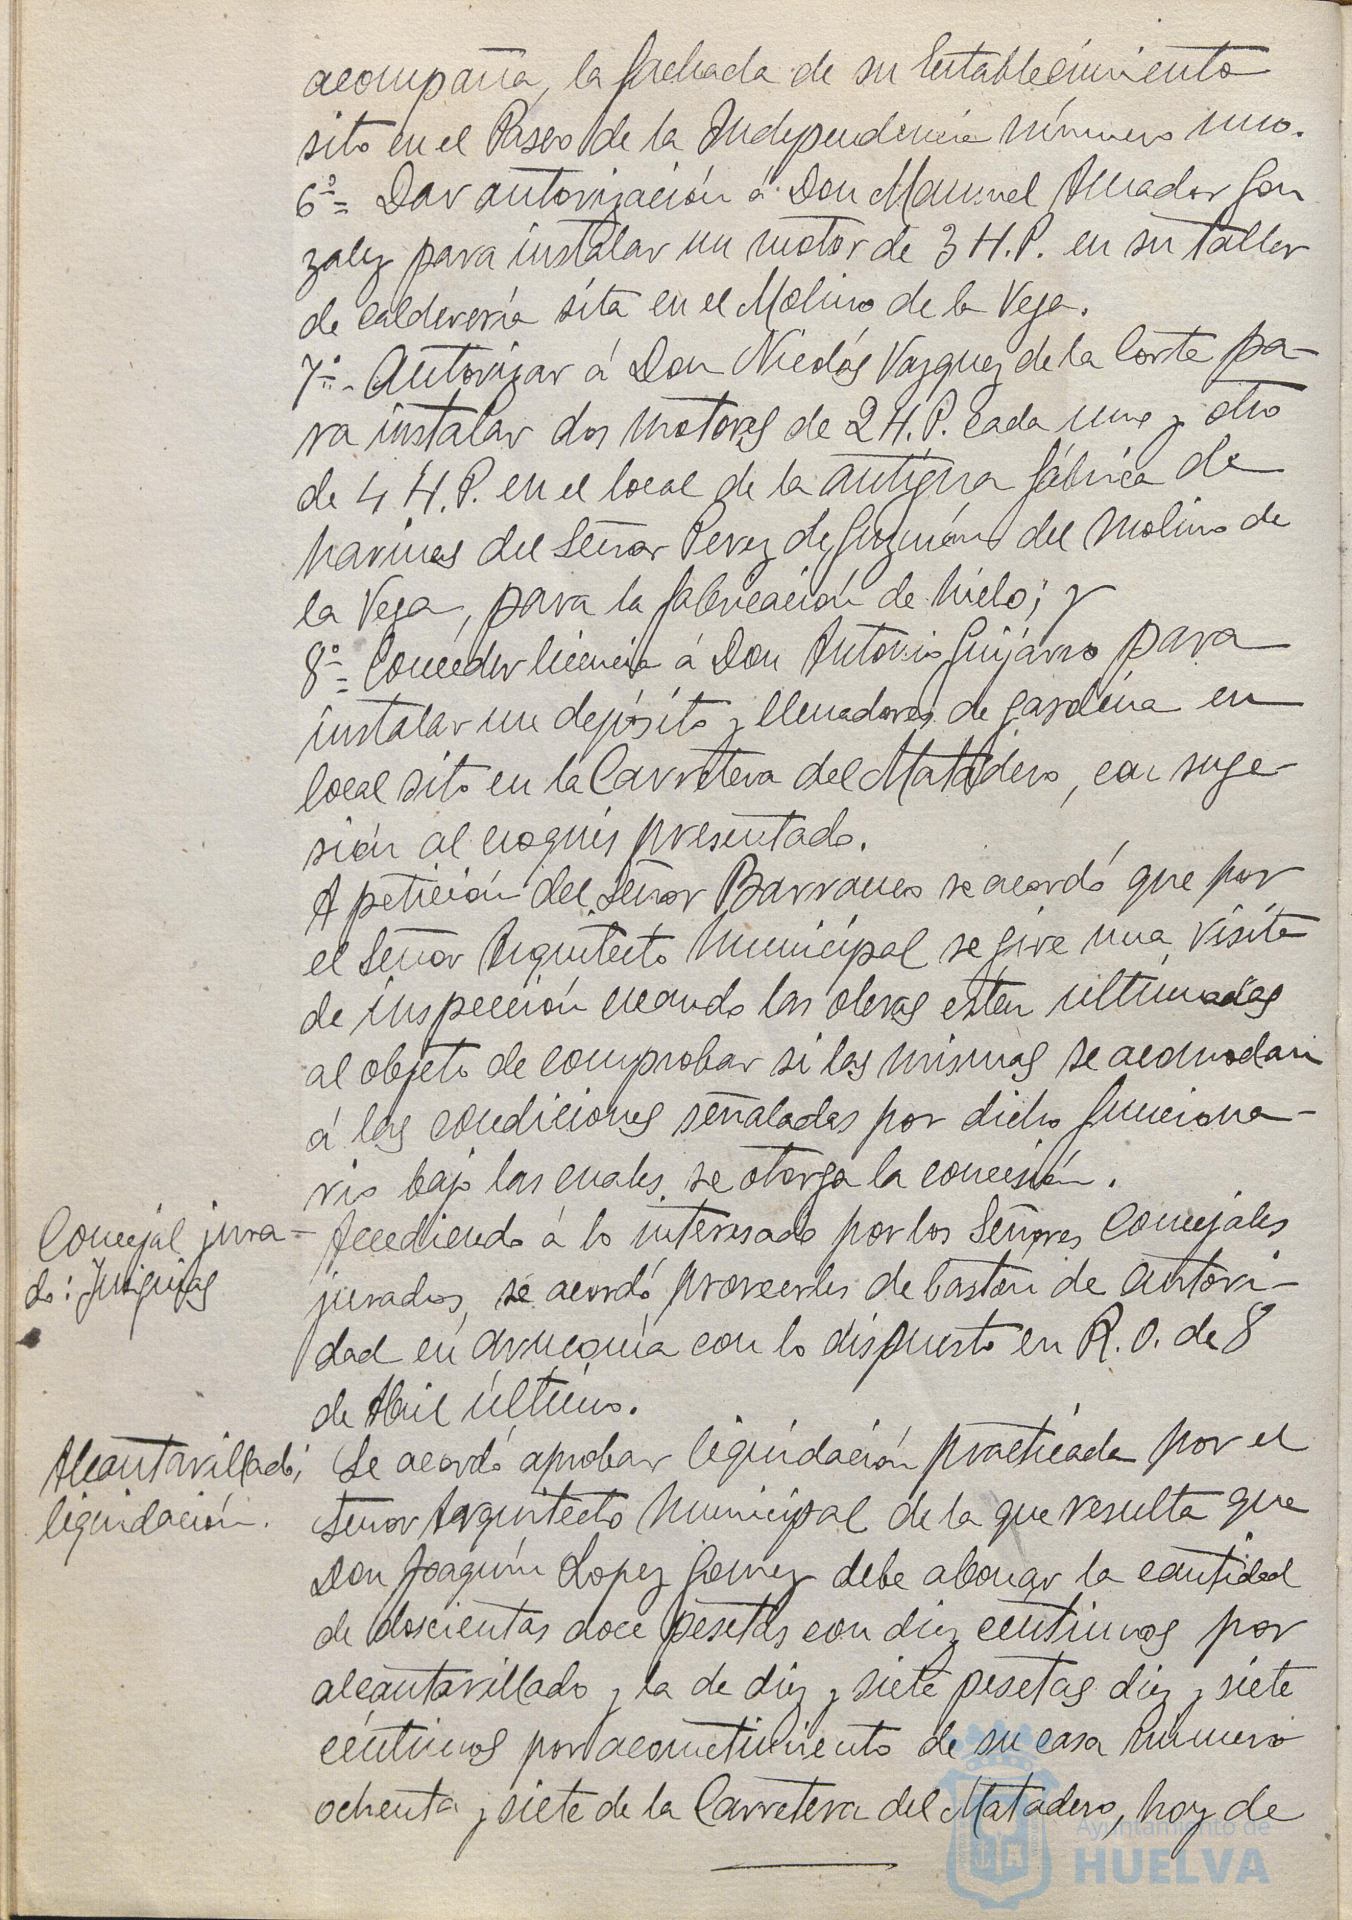 acompaña, la fachada de su Establecimiento
sito en el Paseo de la Independencia número uno.
6º= Dar autorización á Don Manuel Amador Gon
zalez para instalar un motor de 3 H.P. en su taller
de calderería sita en el Molino de la Vega.
7º- Autorizar á Don Nicolás Vazquez de la Corte pa-
ra instalar dos motores de 2 H.P. cada uno y otro
de 4 H.P. en el local de la antigua fábrica de
harinas del Señor Perez de Guzmán del Molino de
la Vega, para la fabricación de hielo; y
8º= Conceder licencia á Don Antonio Guijarro para
instalar un depósito y llenadores de gasolina en
local sito en la Carretera del Matadero, con suge-
sión al croquis presentado.
A petición del Señor Barranco se acordó que por
el Señor Arquitecto Municipal se gire una visita
de inspección cuando las obras estén ultimadas
al objeto de comprobar si las mismas se acomodan
á las condiciones señaladas por dicho funciona-
rio bajo las cuales se otorga la concesión.
Concejal jura-
do: Insignias
Accediendo á lo interesado por los Señores Concejales
jurados, se acordó proveerles de baston de autori-
dad en armonía con lo dispuesto en R.O. de 8
de Abril último.
Alcantarillado;
liquidación.
Se acordó aprobar liquidación practicada por el
Señor Arquitecto Municipal de la que resulta que
Don Joaquín Lopez Gomez debe abonar la cantidad
de doscientas doce pesetas con diez centimos por
alcantarillado y la de diez y siete pesetas diez y siete
céntimos por acometimiento de su casa número
ochenta y siete de la Carretera del Matadero, hoy de
Ayuntamiento de
HUELVA